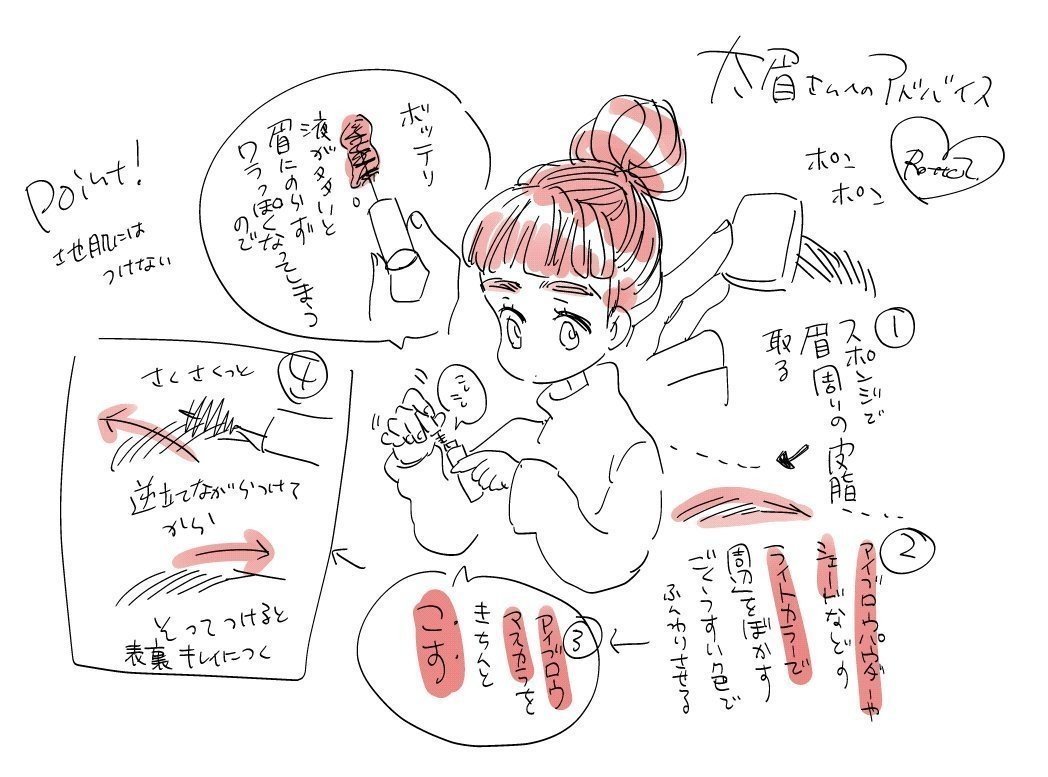 太眉さんへのアドバイス
ポン
ポン
①
スポンジで
眉周りの皮脂
取る
②
アイブロウパウダーや
シェードなどの
ライトカラーで
周辺をぼかす
ごくうすい色で
ふんわりさせる
③
アイブロウ
マスカラを
きちんと
こす
ボッテリ
液が多いと
眉にのらず
ワラっぽくなってしまう
ので
Point!
地肌には
つけない
④
さくさくっと
逆立てながらつけて
から
そってつけると
表裏キレイにつく